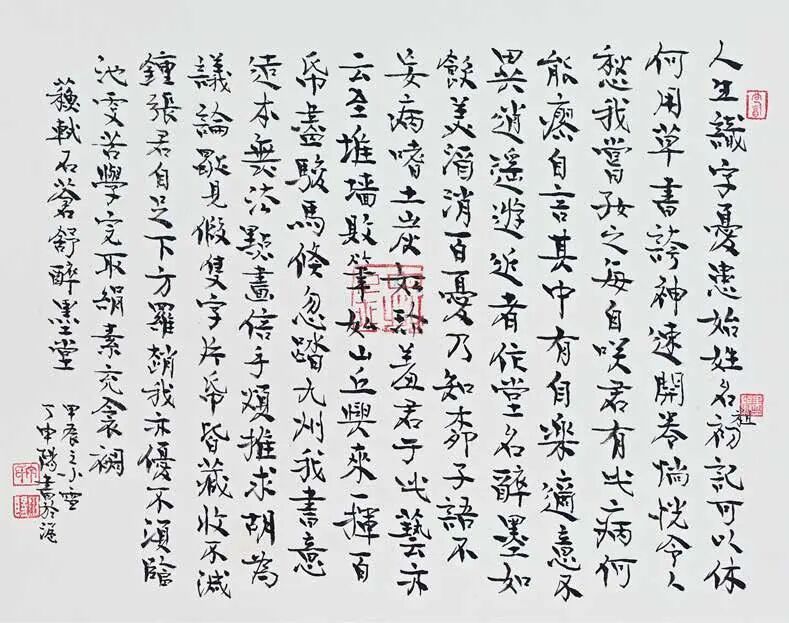 人生識字憂患始姓名初記可以休
粗
何用草書誇神速開卷惝恍令人
愁我嘗好之每自咲君有此病何
能瘳自言其中有自樂適意不
異逍遙遊近者作堂名醉墨如
飲美酒消百憂乃知柳子語不
妄病嗜土炭如珍羞君于此藝亦
云至堆墙敗筆如山丘興來一揮百
帋盡駿馬倏忽踏九州我書意
造本無法點畫信手煩推求胡為
議論獨見假隻字片帋皆藏收不減
鍾張君自足下方羅趙我亦優不須臨
池更苦學完取絹素充衾裯
蘇軾石蒼舒醉墨堂
甲辰之小雪
丁申陽書於滬